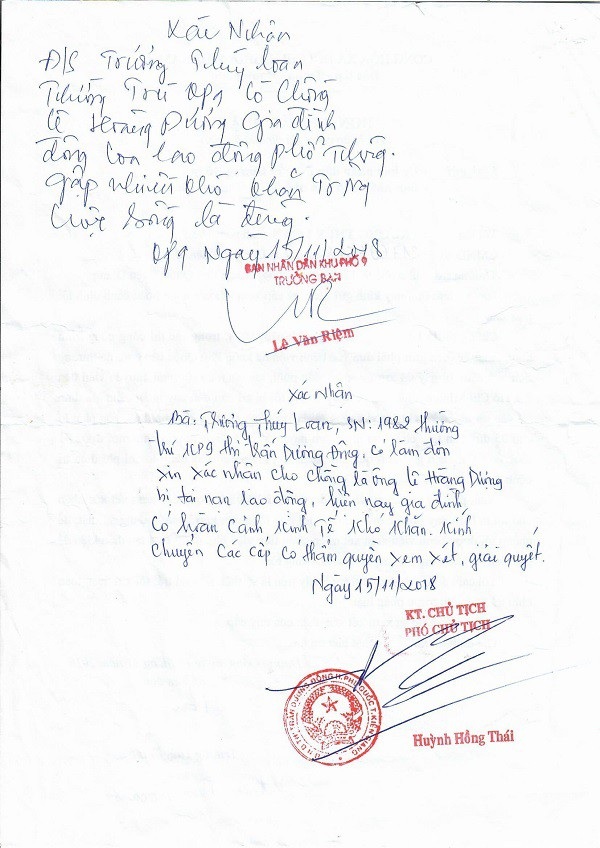 Xác Nhận
Đ/S Trương Thúy Loan
Thường Trú KP9 Có Chồng
Lê Hoàng Dương Gia đình
đông con lao động phổ Thông.
Gặp nhiều khó khăn Trong
cuộc sống là đúng.
KP9 Ngày 15/11/2018
BAN NHÂN DÂN KHU PHỐ 9
TRƯỞNG BAN
Lê Văn Riệm
Xác Nhận
Bà: Trương Thúy Loan, SN: 1982 thường
trú KP9 thị trấn Dương Đông, có làm đơn
xin xác nhận cho chồng là ông Lê Hoàng Dương
bị tai nạn lao động, hiện nay gia đình
có hoàn cảnh kinh tế khó khăn. Kính
chuyển các cấp có thẩm quyền xem xét, giải quyết.
Ngày 15/11/2018
KT. CHỦ TỊCH
PHÓ CHỦ TỊCH
U.B.N.D THỊ TRẤN DƯƠNG ĐÔNG H. PHÚ QUỐC T. KIÊN GIANG
Huỳnh Hồng Thái